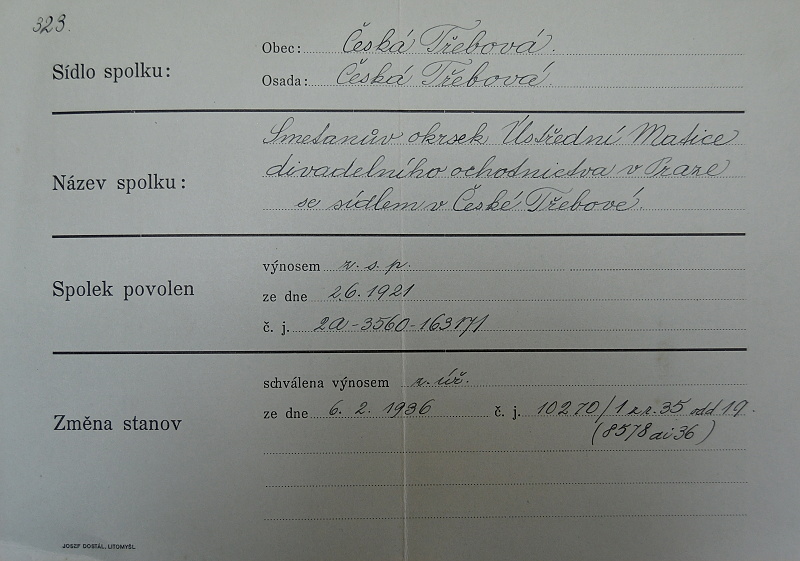 323.
Obec: Česká Třebová.
Sídlo spolku:
Osada: Česká Třebová.
Smetanův okrsek Ústřední Matice
Název spolku: divadelního ochotnictva v Praze
se sídlem v České Třebové.
výnosem z. s. p.
Spolek povolen ze dne 2.6.1921
č. j. 2a-3560-1631/1
schválena výnosem z. úř.
ze dne 6. 2. 1936 č. j. 10270/1 z r. 35 odd 19.
Změna stanov
(8578 ai 36)
JOSEF DOSTÁL, LITOMYŠL